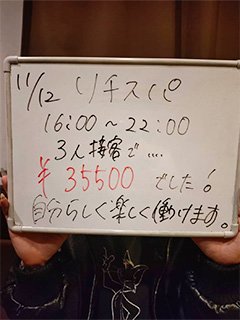 11/12 リチスパ
16:00～22:00
3人接客で….
¥35500 でした!
自分らしく楽しく働けます。